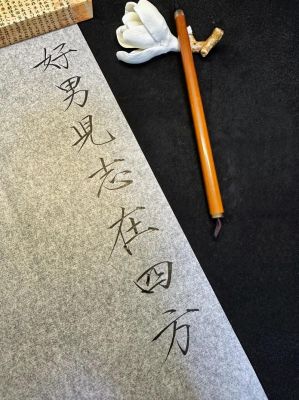 好男児志在四方